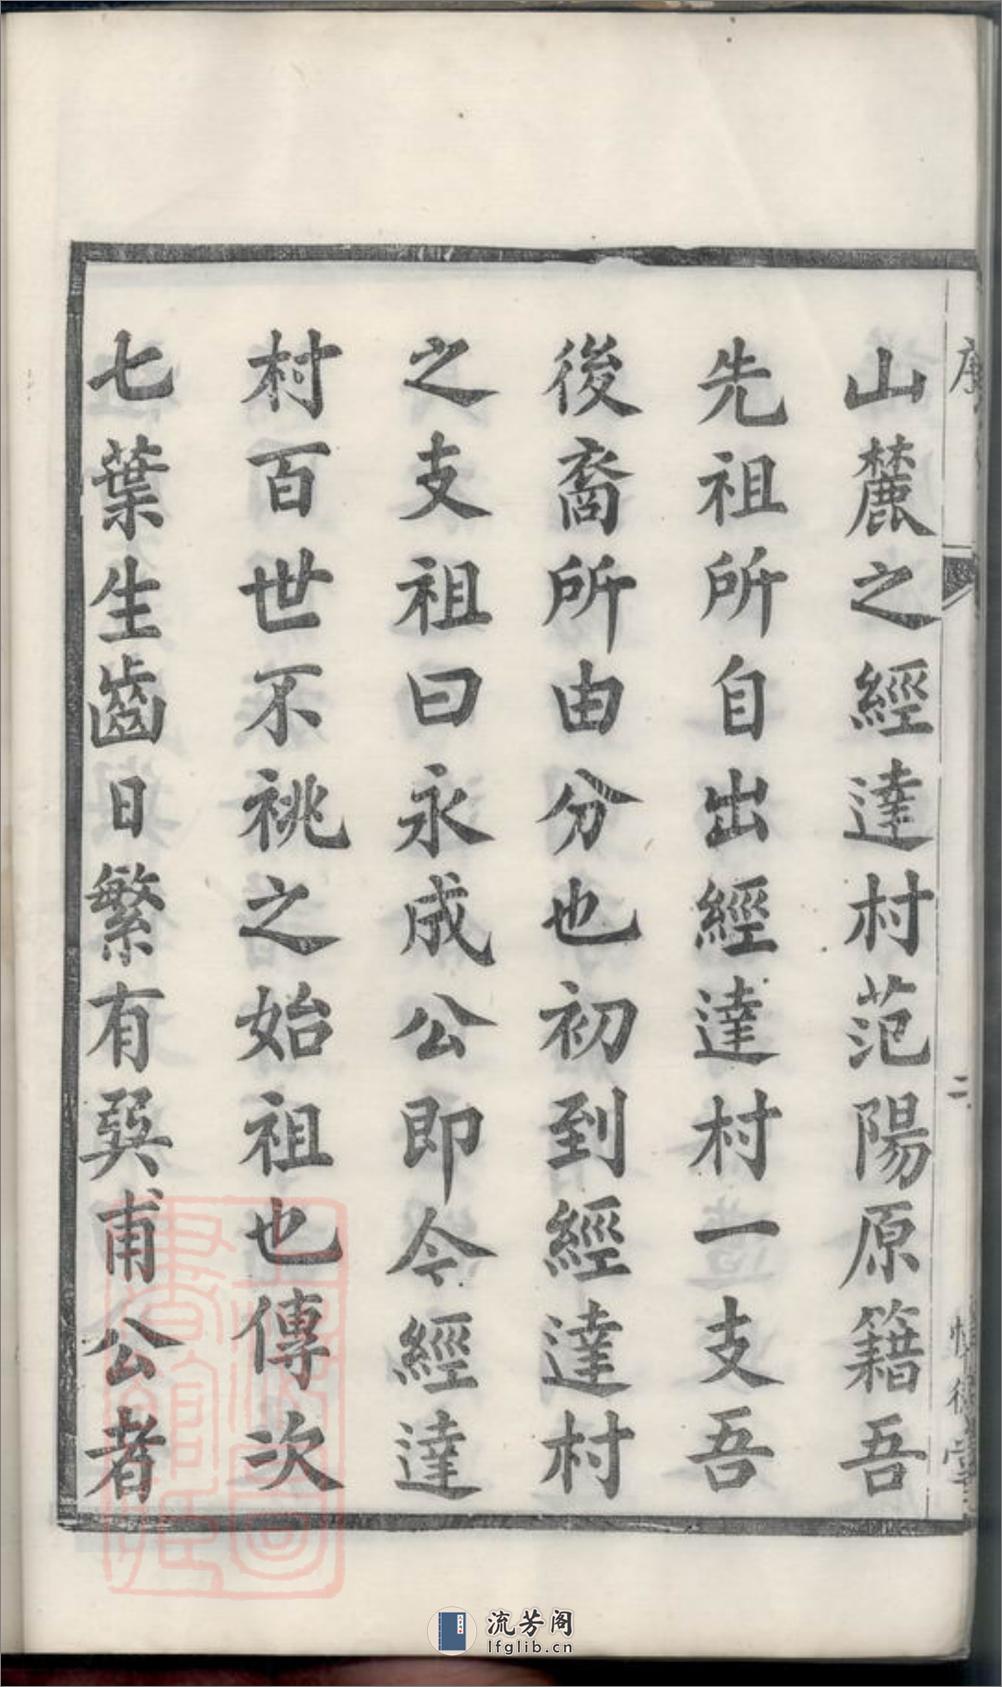 序
二
德堂
山麓之經達村范陽原籍吾
先祖所自出經達村一支吾
後裔所由分也初到經達村
之支祖曰永成公即今經達
村百世不祧之始祖也傳次
七葉生齒日繁有巽甫公者
流芳阁
lfglib.cn